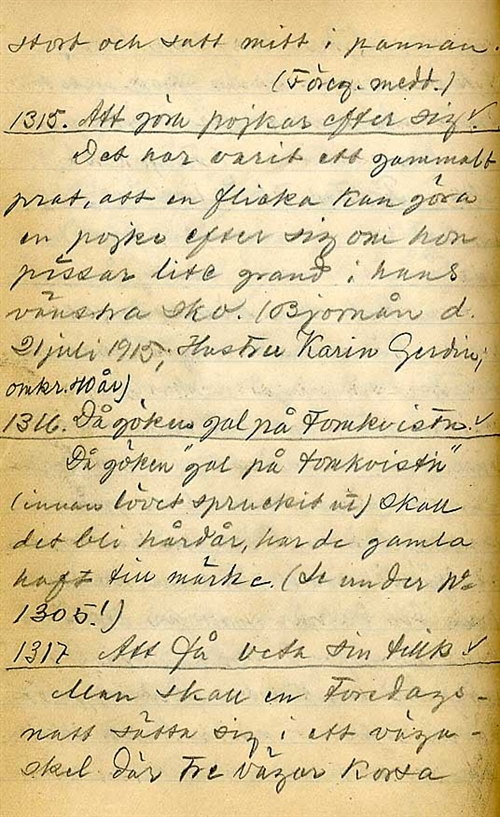 stort och satt mitt i pannan.
(Föreg. medd.)
1315. Att göra pojkar efter sig.
Det har varit ett gammalt
prat, att en flicka kan göra
en pojke efter sig om hon
pissar lite grand i hans
vänstra sko. (Bjornån d.
21 juli 1915; Hustru Karin Gerdin;
omkr. 40 år)
1316. Då göken gal på Tomkvistn.
Då göken "gal på tomkvistn"
(innan lövet spruckit ut) skall
det bli hårdår, har de gamla
haft till märke. (Se under No
1305!)
1317 Att få veta sin tillk.
Man skall en Toredags-
natt sätta sig i ett väga-
skel där tre vägar korsa